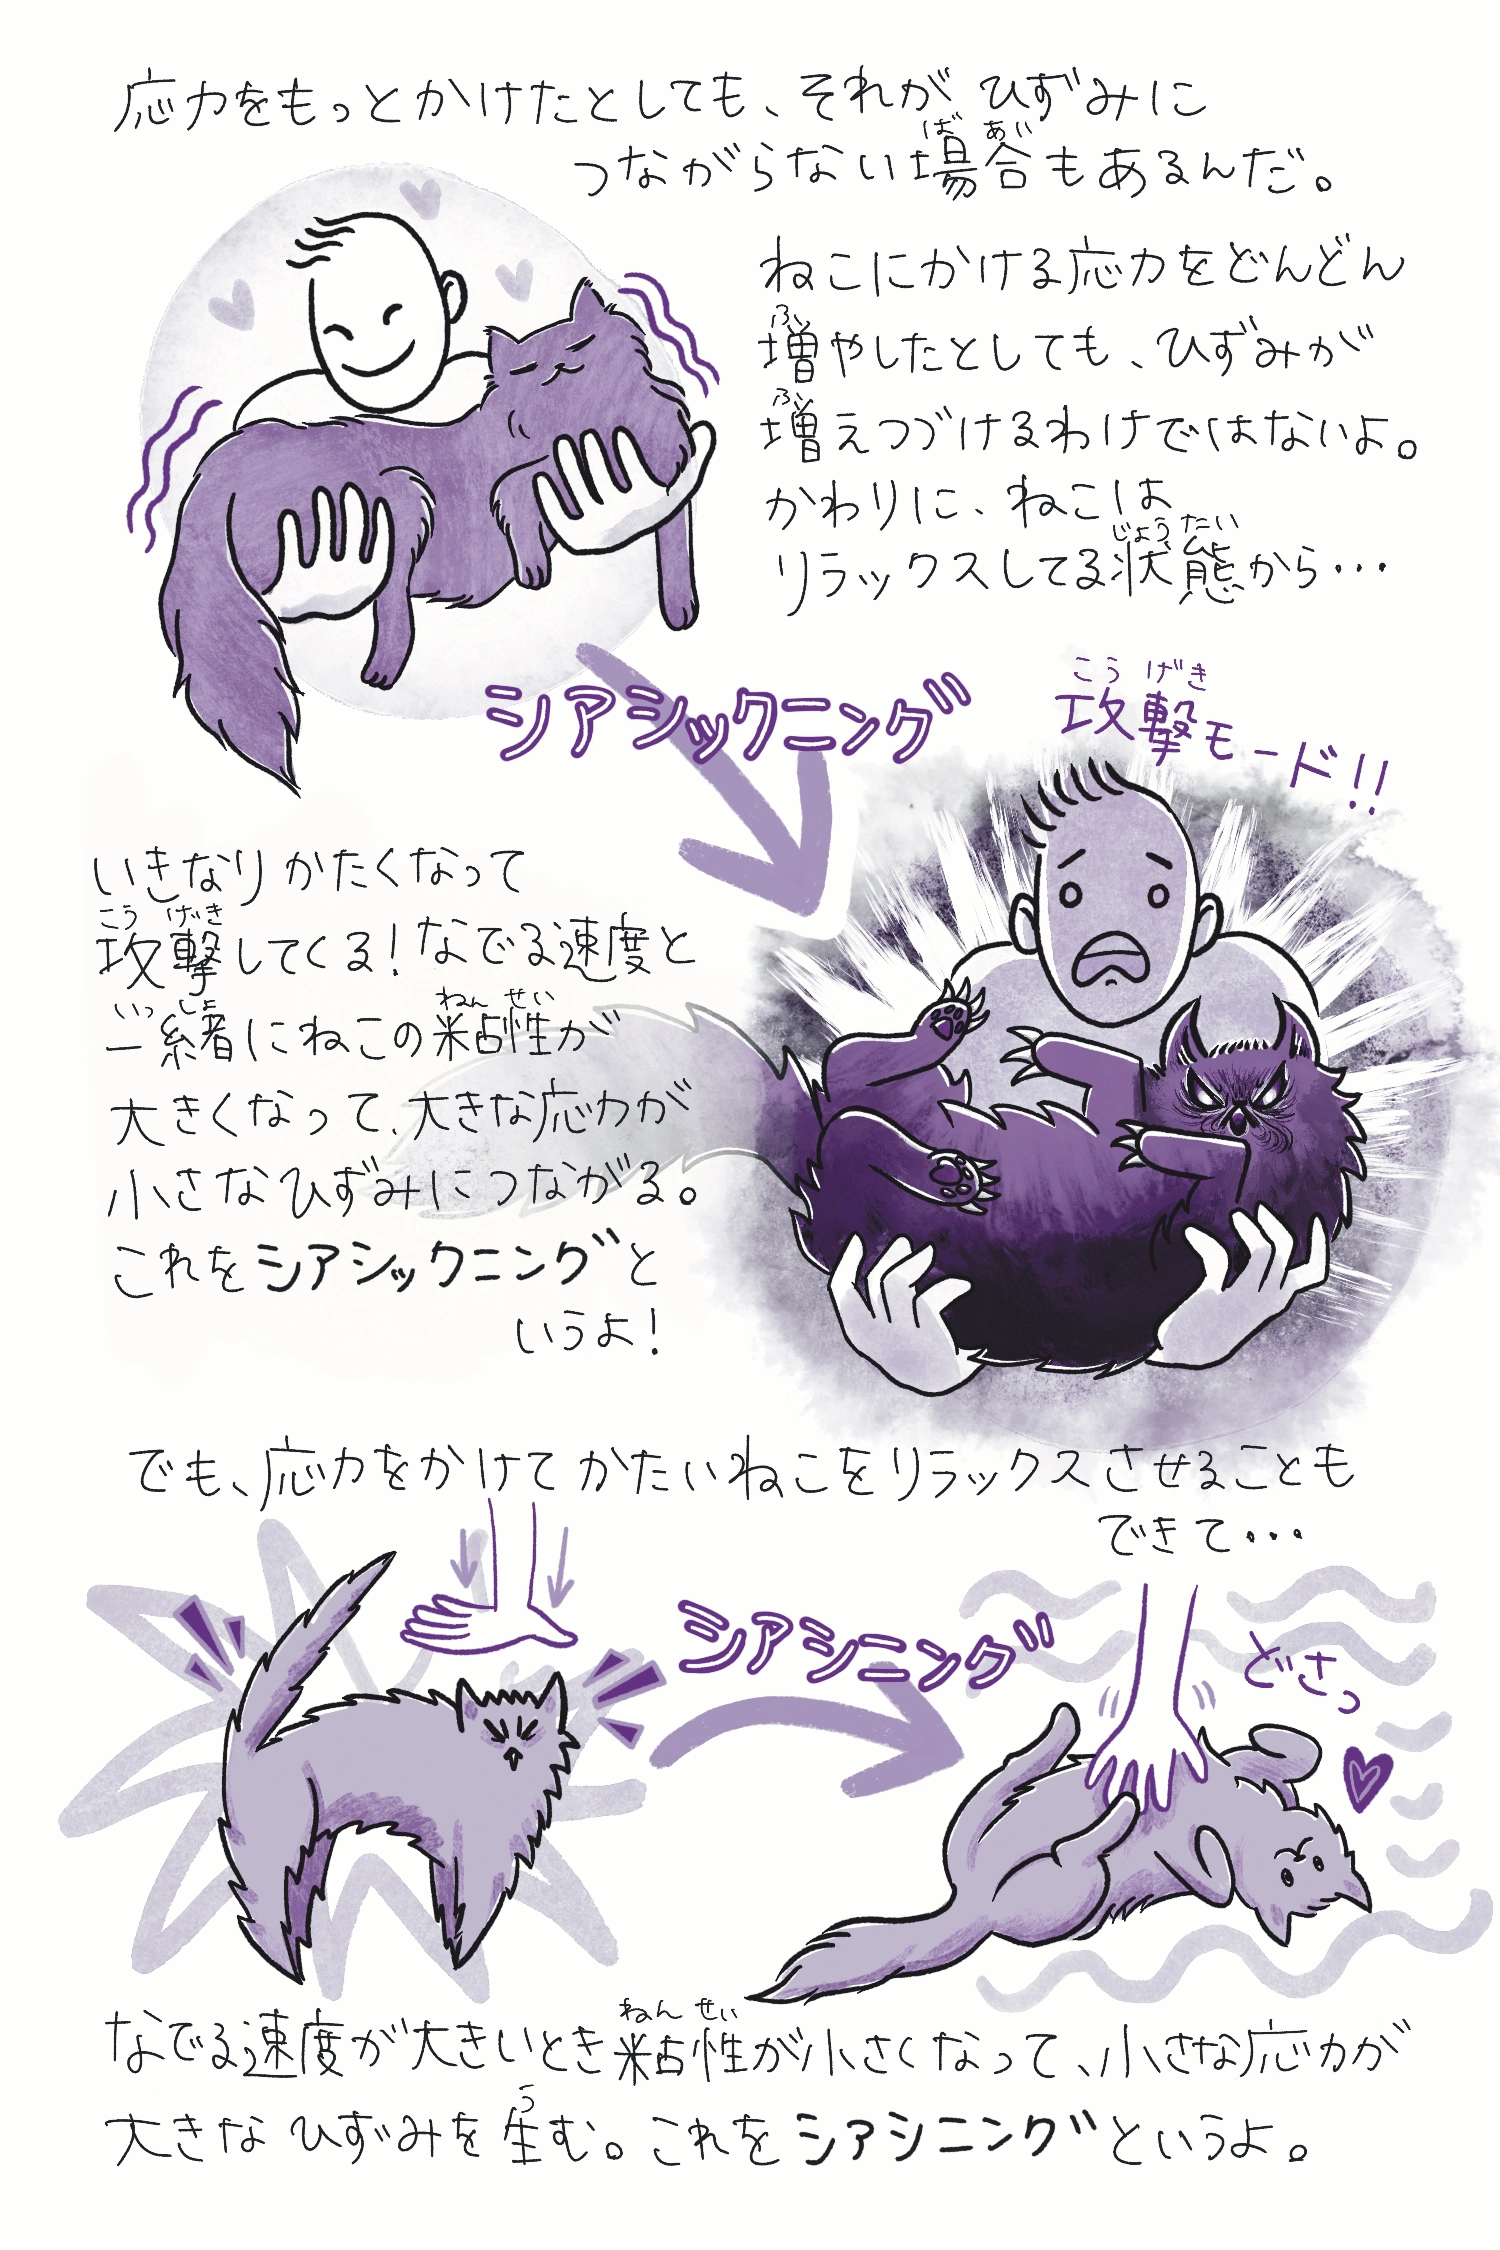 応力をもっとかけたとしても、それがひずみに
つながらない場合もあるんだ。
ばあい
ねこにかける応力をどんどん
増やしたとしても、ひずみが
ふ
増えつづけるわけではないよ。
ふ
かわりに、ねこは
リラックスしてる状態から…
じょうたい
シアシックニング
攻撃モード!!
こうげき
いきなりかたくなって
攻撃してくる!なでる速度と
こうげき
一緒にねこの粘性が
いっしょ ねんせい
大きくなって、大きな応力が
小さなひずみにつながる。
これをシアシックニングと
いうよ!
でも、応力をかけてかたいねこをリラックスさせることも
できて…
シアシニング
どさっ
なでる速度が大きいとき粘性が小さくなって、小さな応力が
ねんせい
大きなひずみを生む。これをシアシニングというよ。
う